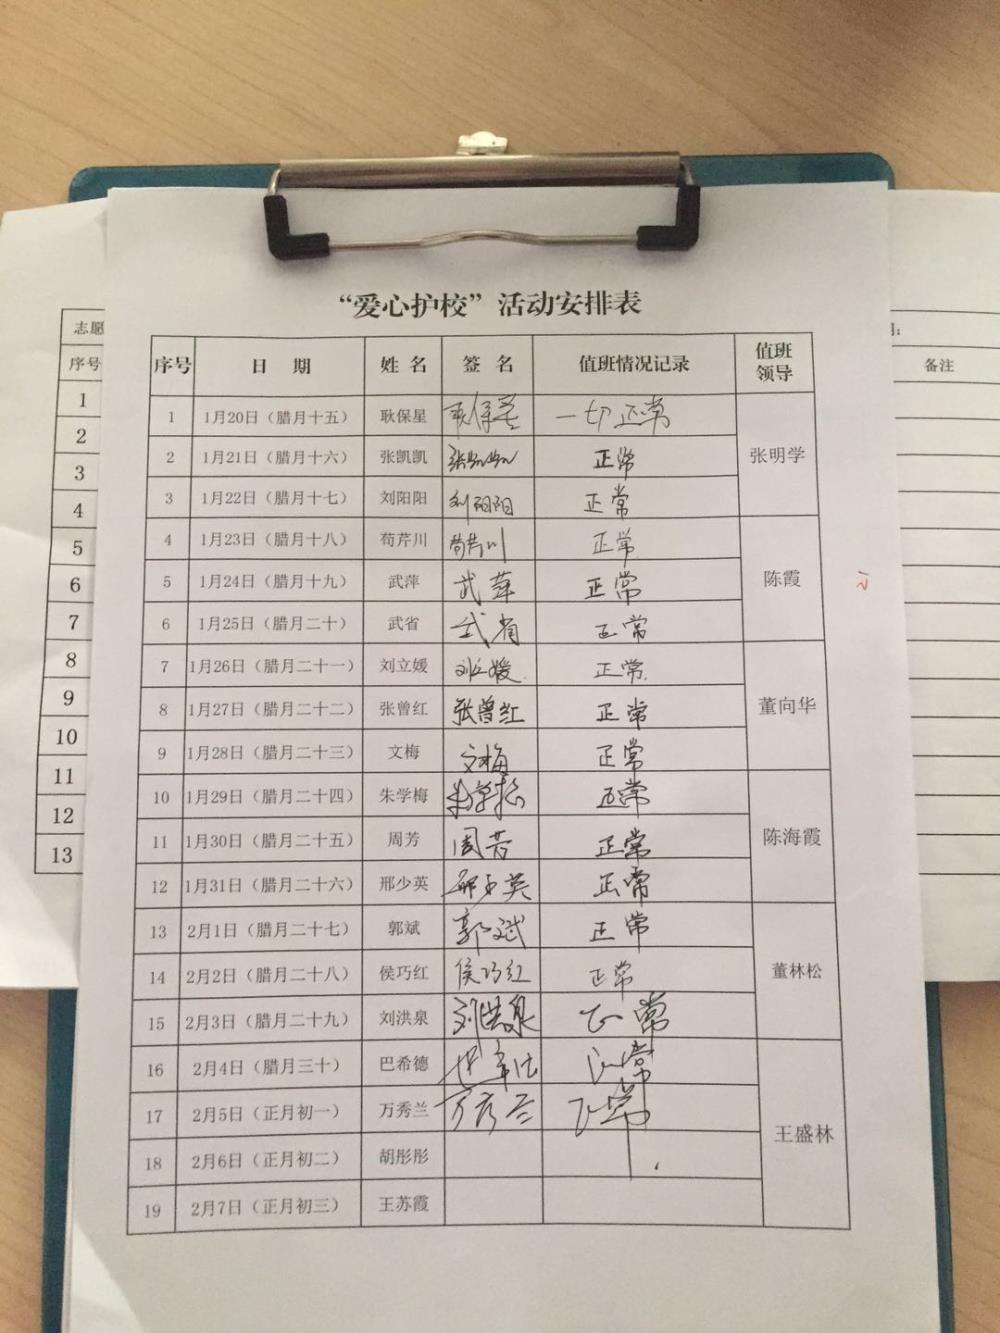 “爱心护校”活动安排表
序号 日 期 姓 名 签 名 值班情况记录 值班领导
1 1月20日（腊月十五） 耿保星 耿保星 一切正常 张明学
2 1月21日（腊月十六） 张凯凯 张凯凯 正常
3 1月22日（腊月十七） 刘阳阳 刘阳阳 正常
4 1月23日（腊月十八） 苟芹川 苟芹川 正常 陈霞
5 1月24日（腊月十九） 武萍 武萍 正常
6 1月25日（腊月二十） 武省 武省 正常
7 1月26日（腊月二十一） 刘立媛 刘立媛 正常 董向华
8 1月27日（腊月二十二） 张曾红 张曾红 正常
9 1月28日（腊月二十三） 文梅 文梅 正常
10 1月29日（腊月二十四） 朱学梅 朱学梅 正常 陈海霞
11 1月30日（腊月二十五） 周芳 周芳 正常
12 1月31日（腊月二十六） 邢少英 邢少英 正常
13 2月1日（腊月二十七） 郭斌 郭斌 正常 董林松
14 2月2日（腊月二十八） 侯巧红 侯巧红 正常
15 2月3日（腊月二十九） 刘洪泉 刘洪泉 正常
16 2月4日（腊月三十） 巴希德 正常 王盛林
17 2月5日（正月初一） 万秀兰 万秀兰 正常
18 2月6日（正月初二） 胡彤彤
19 2月7日（正月初三） 王苏霞
志愿
序号
1
2
3
4
5
6
7
8
9
10
11
12
13
备注